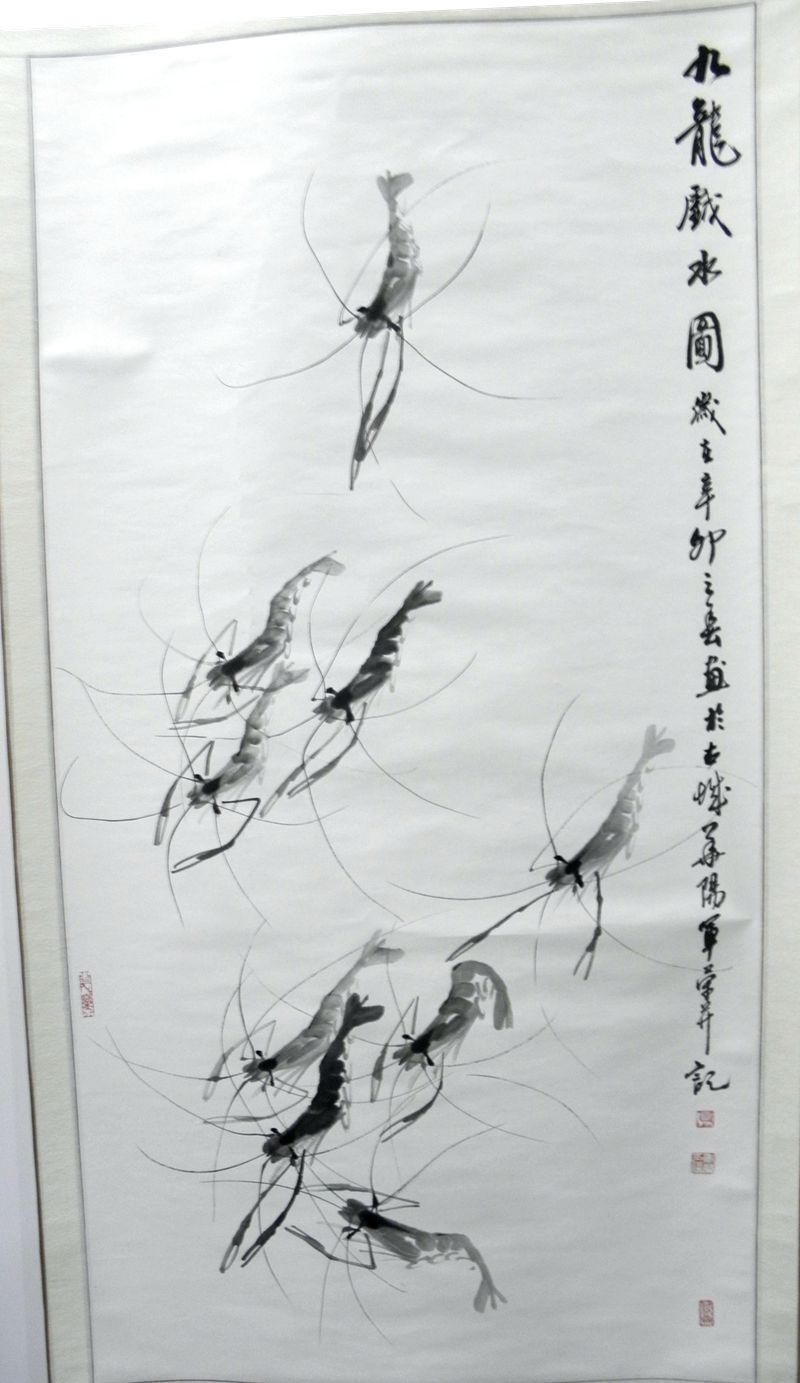 九龍戲水圖 歲在辛卯之春畫於古城華陽軍榮并記